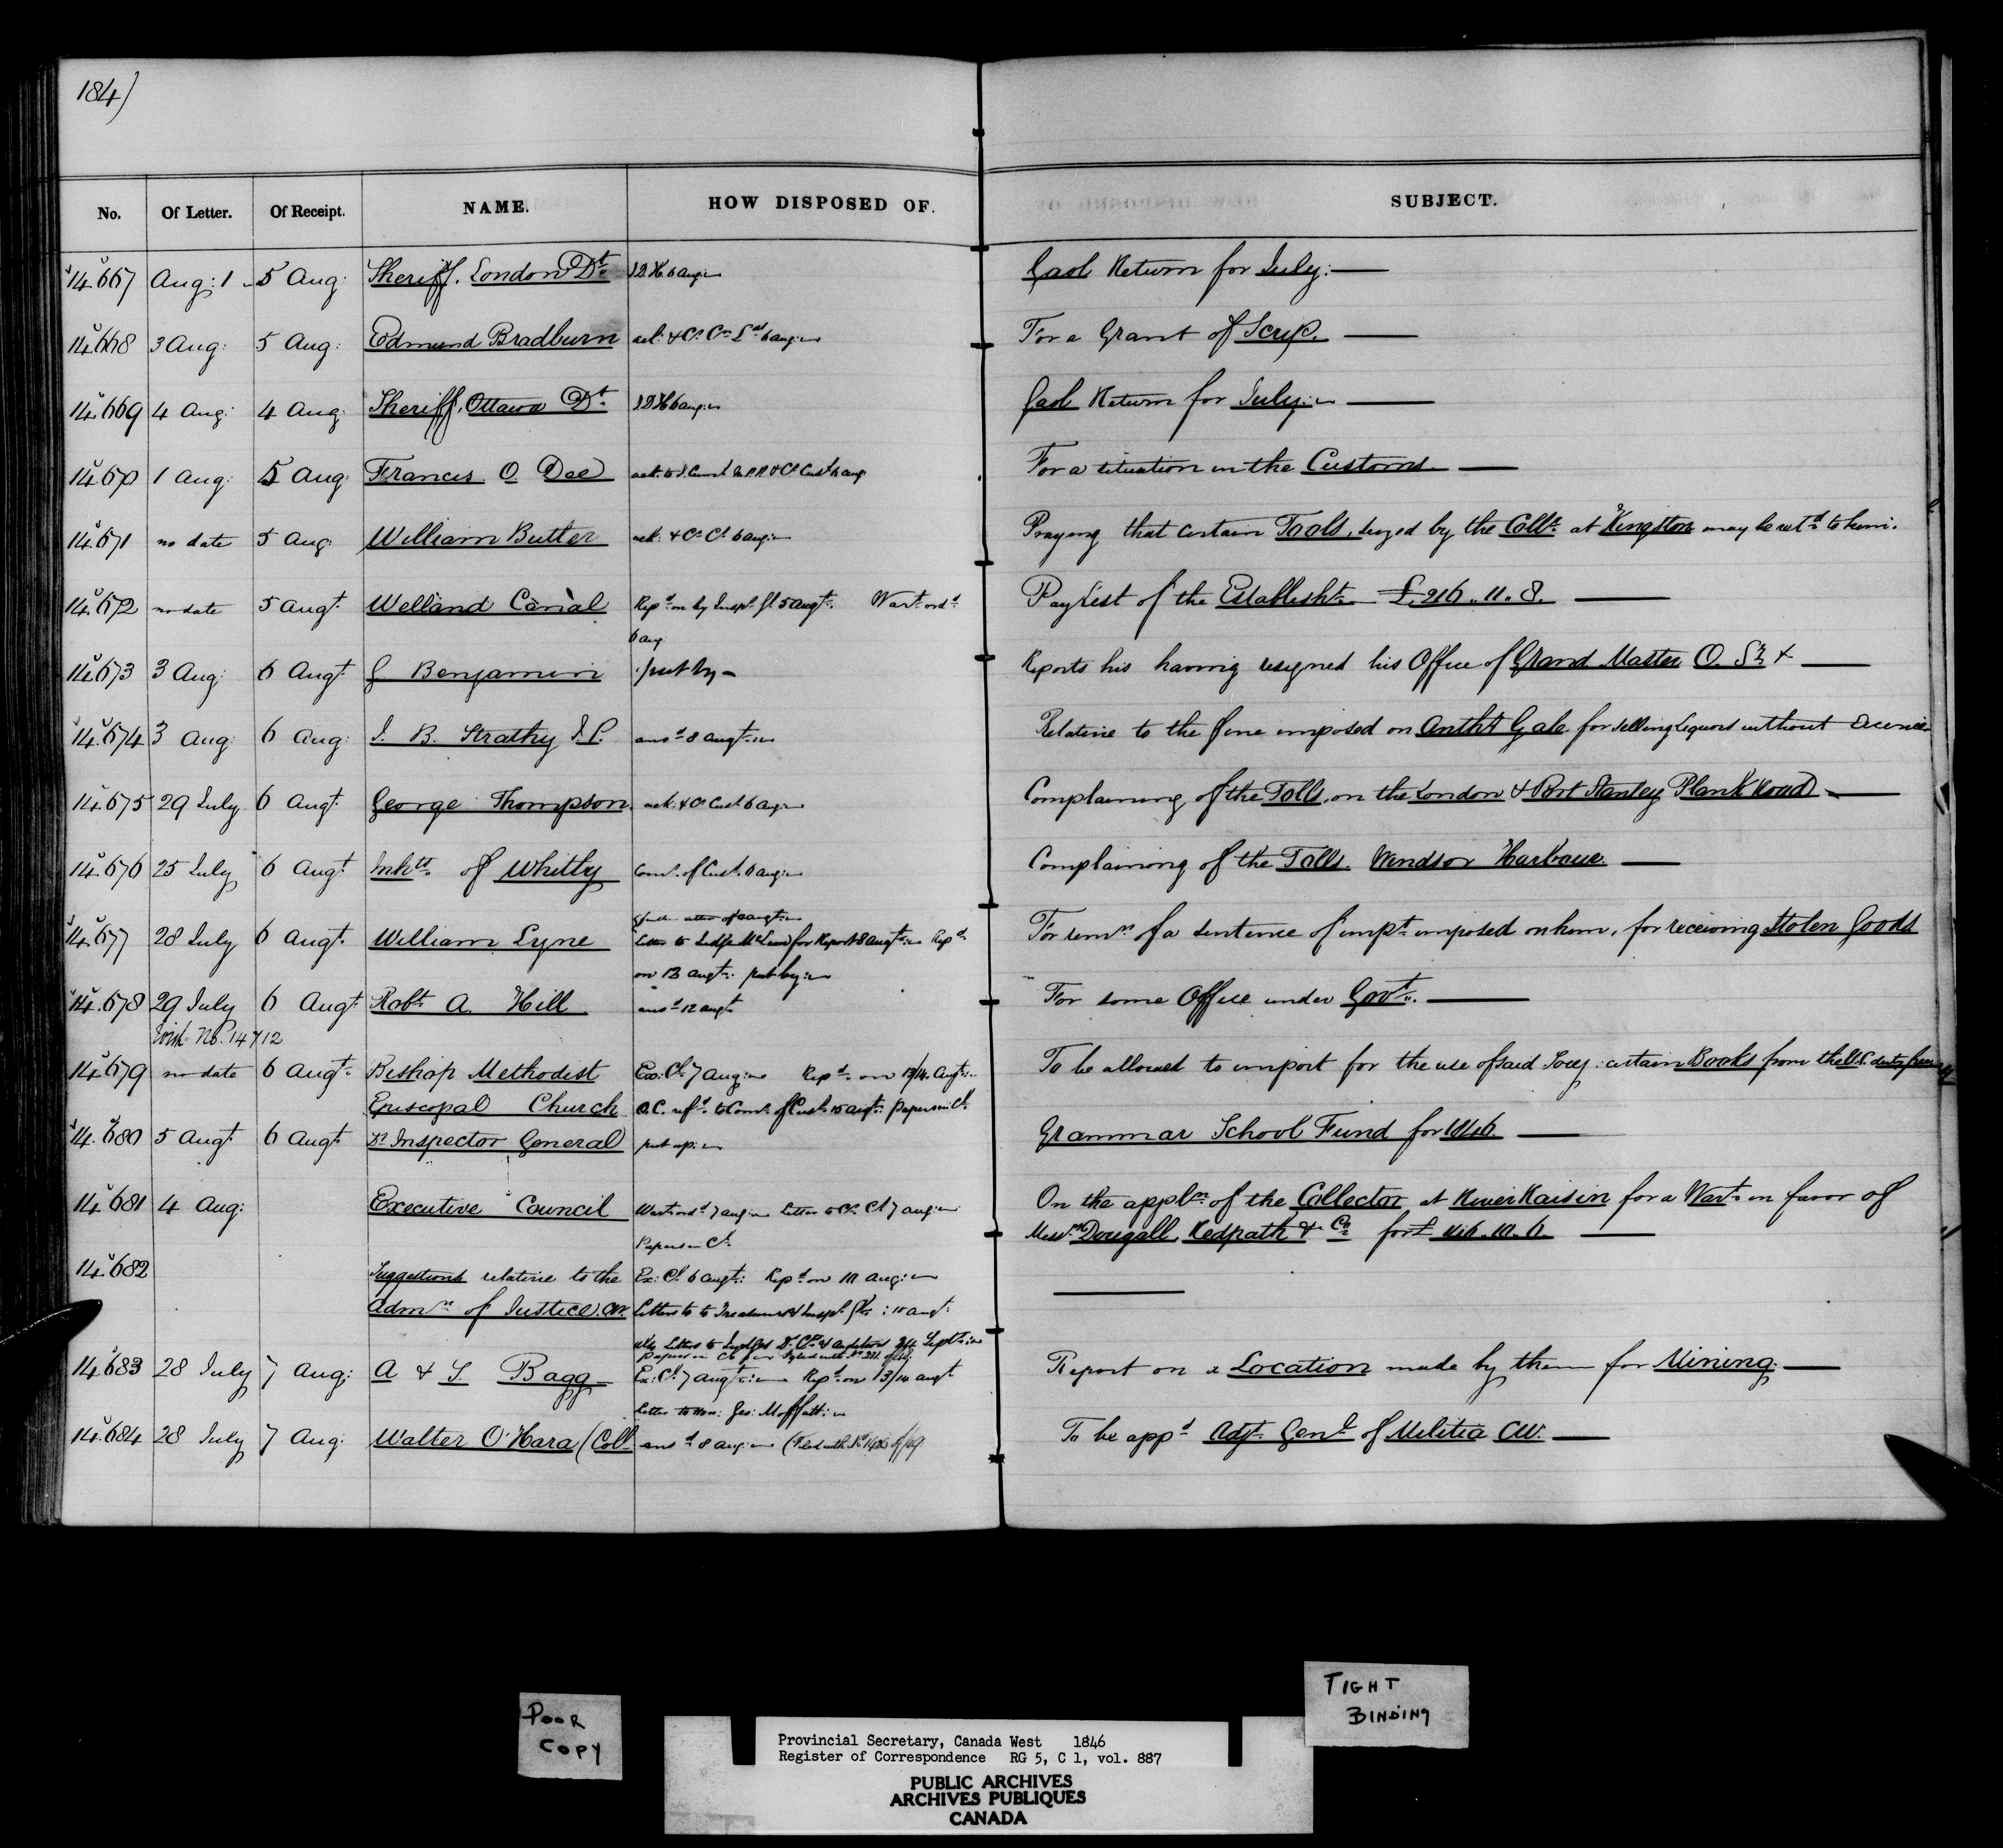 184)
No. Of Letter. Of Receipt. NAME. HOW DISPOSED OF. SUBJECT.
14.667 Aug: 1 5 Aug: Sheriff. London Dt. 6 Aug: Gaol Return for July:
14.668 3 Aug: 5 Aug: Edmund Bradburn ack: & 6 Aug: For a Grant of Scrip.
14.669 4 Aug: 4 Aug: Sheriff, Ottawa Dt. 6 Aug: Gaol Return for July:
14.670 1 Aug: 5 Aug: Frances O Dee ack: to & Cust 6 Aug For a situation in the Customs
14.671 no date 5 Aug. William Butler ack: & Cr. Cl. 6 Aug: Praying that certain Tools, seized by the Collr. at Kingston may be retd. to him.
14.672 no date 5 Augt. Welland Canal Repd. on by Inspr. Gl 5 Augt. Wart. ordd. Pay List of the Establisht. £.216.11.8.
6 Aug
14.673 3 Aug: 6 Augt. G Benjamin put by Reports his having resigned his Office of Grand Master O.
14.674 3 Aug: 6 Aug: J. B. Strathy J.P. ansd 8 Augt. Relative to the fine imposed on Anthy Gale for selling Liquors without Licence
14.675 29 July 6 Augt. George Thompson. ack: & Cust. 6 Aug: Complaining of the Tolls, on the London & Port Stanley Plank Road
14.676 25 July 6 Augt. Inhts. of Whitby Comr. of Cust. 6 Aug: Complaining of the Tolls Windsor Harbour.
14.677 28 July 6 Augt. William Lyne Letter to Judge McLean for Report 8 Augt. Repd. For remn. of a sentence of impt. imposed on him, for receiving Stolen Goods
on 13 Augt. put by:
14.678 29 July 6 Augt. Robt. A. Hill ansd 12 Augt For some Office under Govt.
With No. 14712
14.679 no date 6 Augt. Bishop Methodist Ex. Cl. 7 Aug: Repd. on 13/14 Augt. To be allowed to import for the use of said Socy: certain Books from the U.S. duty free
Episcopal Church O.C. refd. to Comr. of Cust. 15 Augt. papers in Cl.
14.680 5 Augt. 6 Augt. Dy. Inspector General put up: Grammar School Fund for 1846.
14.681 4 Aug: Executive Council Wart. ordd. 7 Aug: Letter to Cr. Cl 7 Aug: On the appln. of the Collector at River Raisin for a Wart. in favor of
Papers in Cl. Messrs. Dougall, Redpath & Co for £
14.682 Suggestions relative to the Ex: Cl. 6 Augt: Repd on 10 Aug:
Admn. of Justice. CW. Letters to to Treasurers & Inspr. Gl. 15 Augt:
Letters to Inspr Gl Sept:
14.683 28 July 7 Aug: A & S. Bagg Ex: Cl. 7 Augt: Repd. on 13/14 Augt Report on a Location made by them for Mining:
Letter to Hon: Geo: Moffatt:
14.684 28 July 7 Aug: Walter O'Hara (Coll. ansd 8 Aug: (Filed with No. To be appd Adjt. Genl. of Militia CW.
POOR
COPY
TIGHT
BINDING
Provincial Secretary, Canada West 1846
Register of Correspondence RG 5, C 1, vol. 887
PUBLIC ARCHIVES
ARCHIVES PUBLIQUES
CANADA